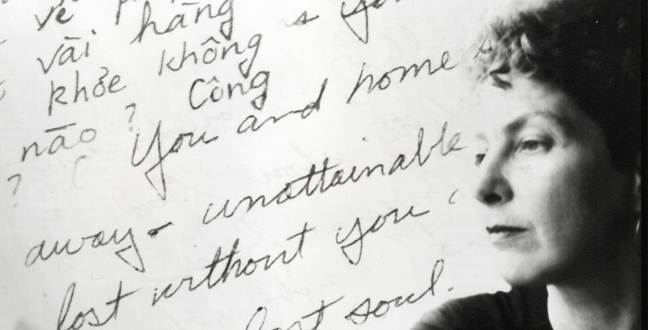 vài hàng
khỏe không
nào? Công
You and home
?
away- unattainable,
lost without you
lost soul.